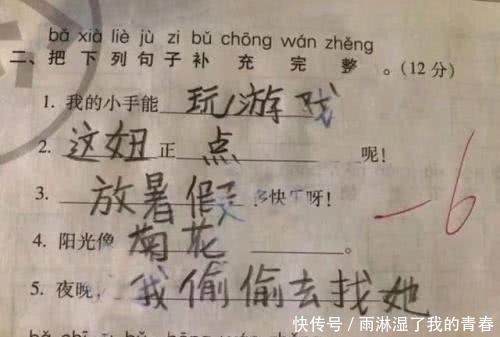 bǎ xià liè jù zi bǔ chōng wán zhěng
二、把下列句子补充完整。(12分)
1. 我的小手能玩游戏
2. 这妞正点呢!
3. 放暑假多快乐呀!
4. 阳光像菊花。
5. 夜晚,我偷偷去找她
-6
快传号/雨淋湿了我的青春